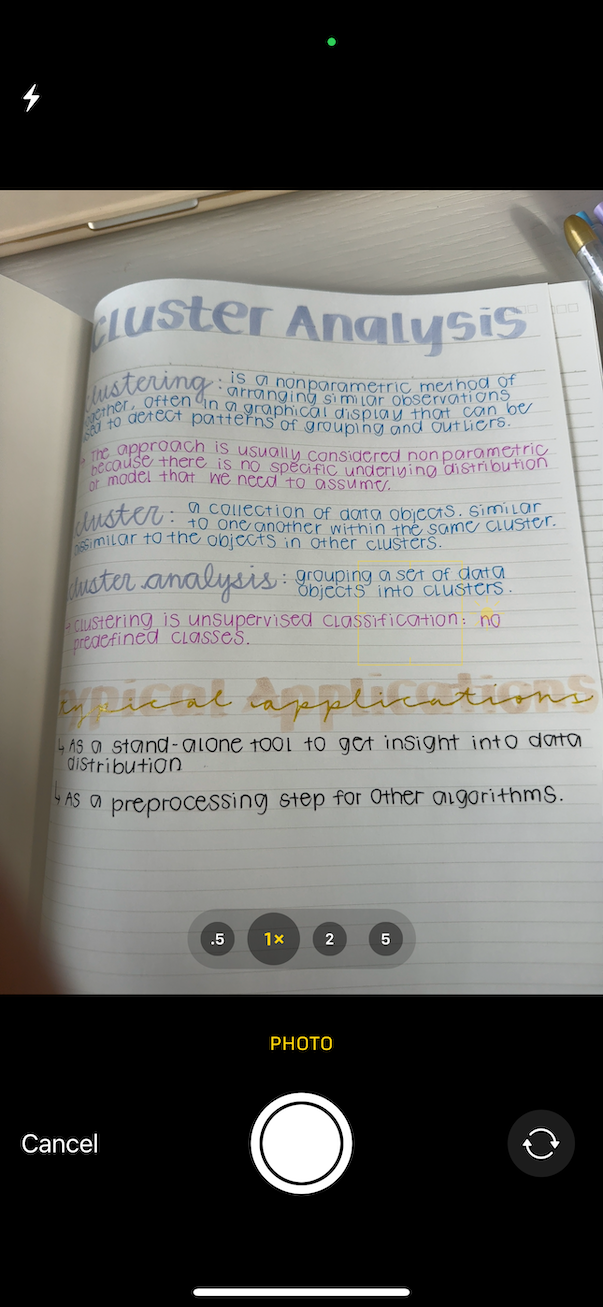 Cluster Analysis
clustering: is a nonparametric method of
arranging similar observations
together, often in a graphical display that can be
used to detect patterns of grouping and outliers.
The approach is usually considered nonparametric
because there is no specific underlying distribution
or model that we need to assume.
cluster: a collection of data objects. similar
to one another within the same cluster.
Dissimilar to the objects in other clusters.
cluster analysis: grouping a set of data
objects into clusters.
→ clustering is unsupervised classification: no
predefined classes.
Typical Applications
typical applications
↳ As a stand-alone tool to get insight into data
distribution
↳ As a preprocessing step for other algorithms.
.5 1× 2 5
PHOTO
Cancel